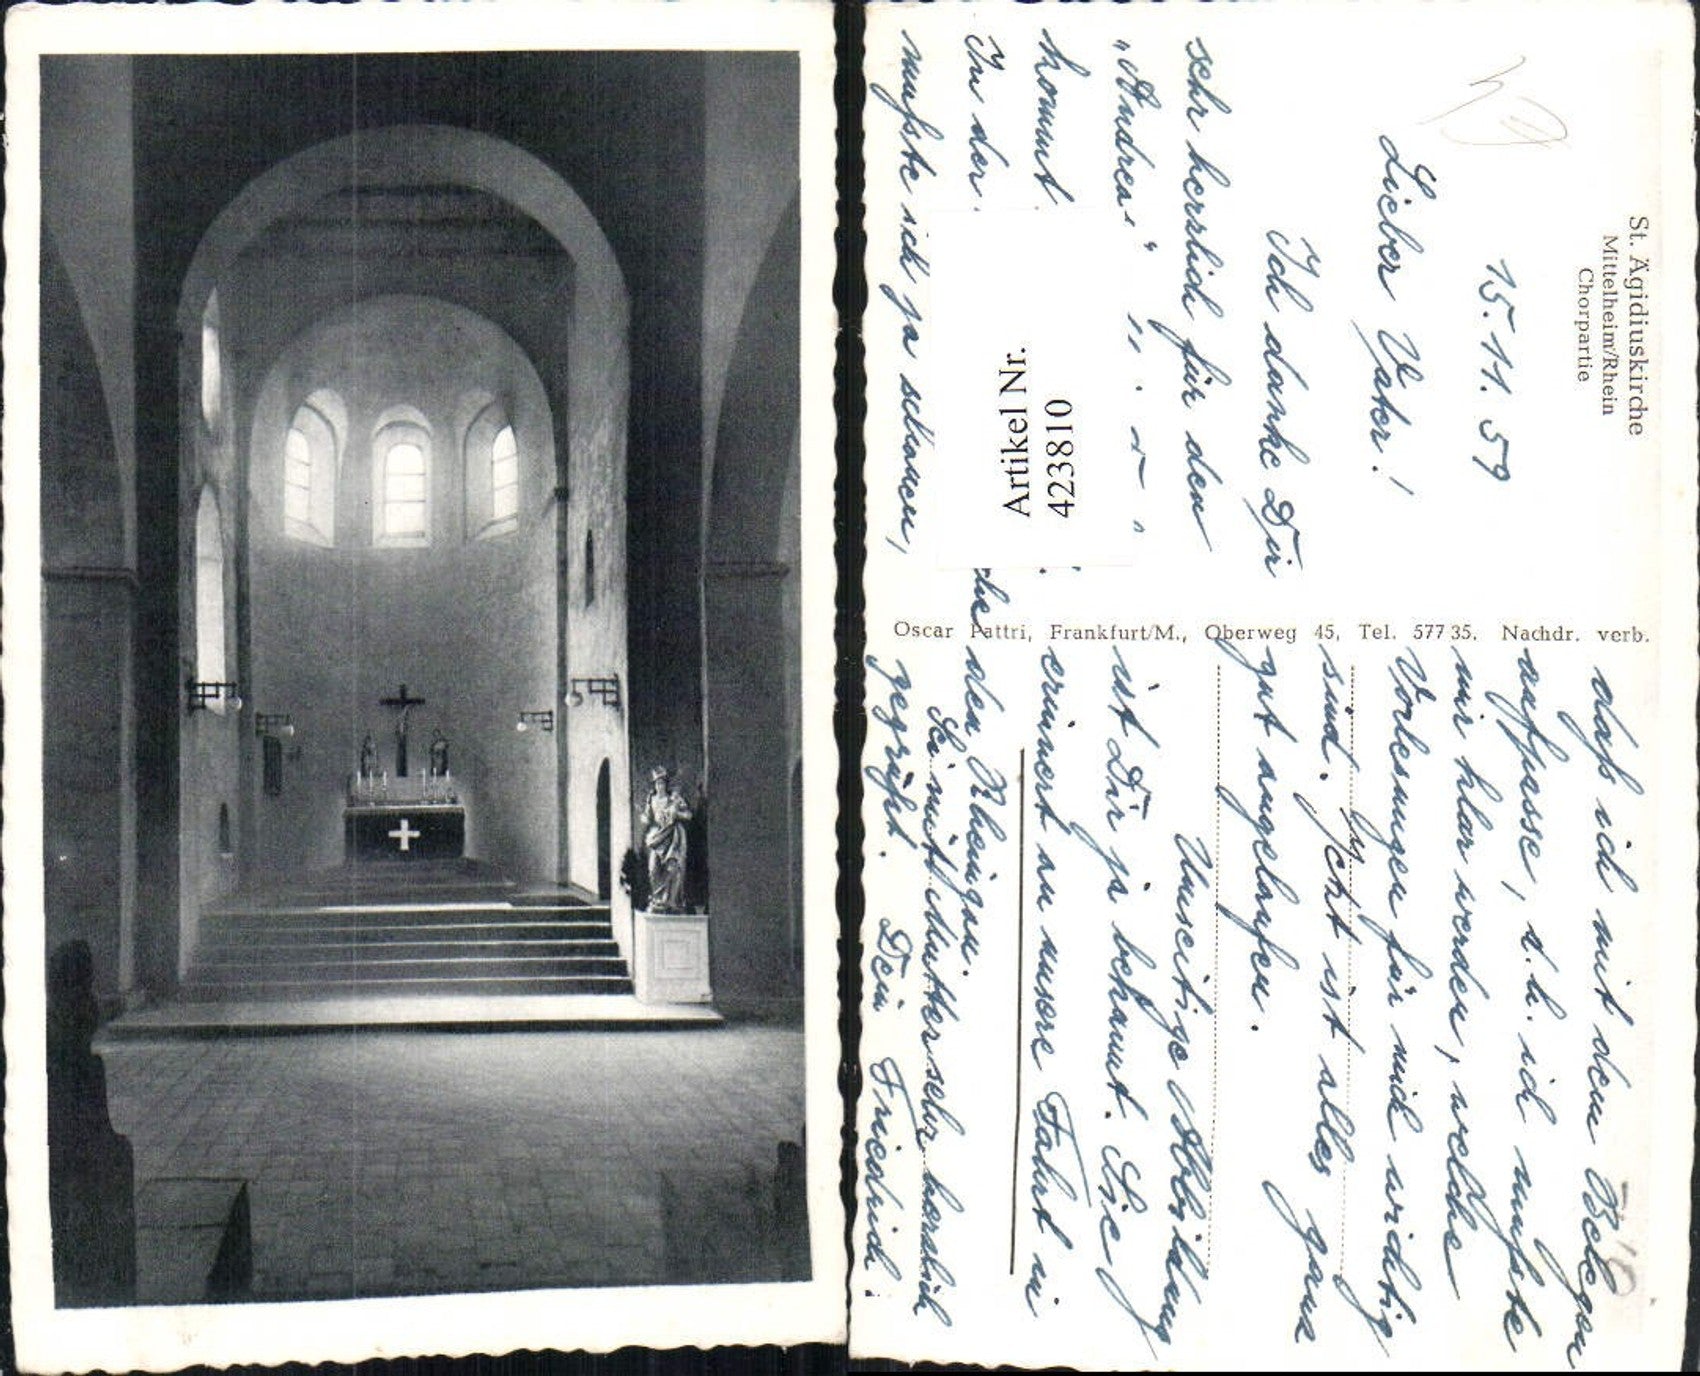 St. Ägidiuskirche
Mittelheim/Rhein
Chorpartie
15. 11. 59
Lieber Vater!
Ich danke Dir
sehr herzlich für den
"Andrea"
kommt.
In der
mußte ich ja schauen,
Artikel Nr.
4223810
Oscar Pattri, Frankfurt/M., Oberweg 45, Tel. 577 35. Nachdr. verb.
daß ich mit dem Belegen
aufpasse, d.h. ich mußte
mir klar werden, welche
Vorlesungen für mich wichtig
sind. Jetzt ist alles ganz
gut angelaufen.
Umseitige Abbildung
ist Dir ja bekannt. Sie
erinnert an unsere Fahrt in
den Rheingau.
Sei mit Mutter sehr herzlich
gegrüßt. Dein Friedrich.